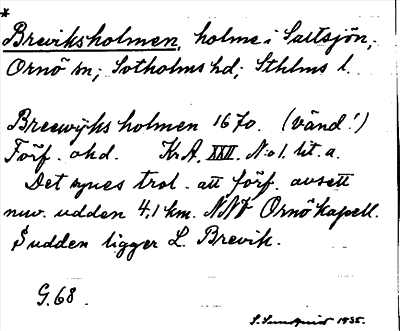 *
Breviksholmen, holme i Saltsjön,
Ornö sn; Sotholms hd; Sthlms l.
Breewÿks holmen 1670. (vänd!)
Förf. okd. KrA, XXII. N:o 1. lit. a.
Det synes trol. att förf. avsett
nuv. udden 4,1 km. NNV Ornö kapell.
S udden ligger L. Brevik.
G.68.
S. Sundqvist 1935.